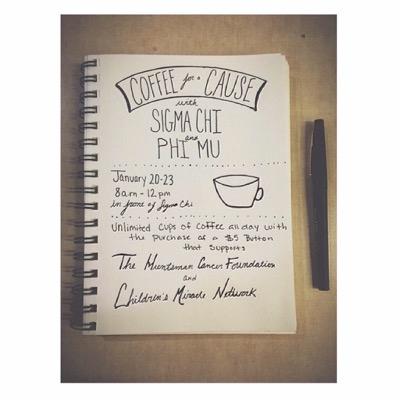 COFFEE for a CAUSE
with
SIGMA CHI
and
PHI MU
January 20-23
8am - 12pm
in front of Sigma Chi
Unlimited Cups of Coffee all day with
the purchase of a $5 Button
that supports
The Huntsman Cancer Foundation
and
Children's Miracle Network